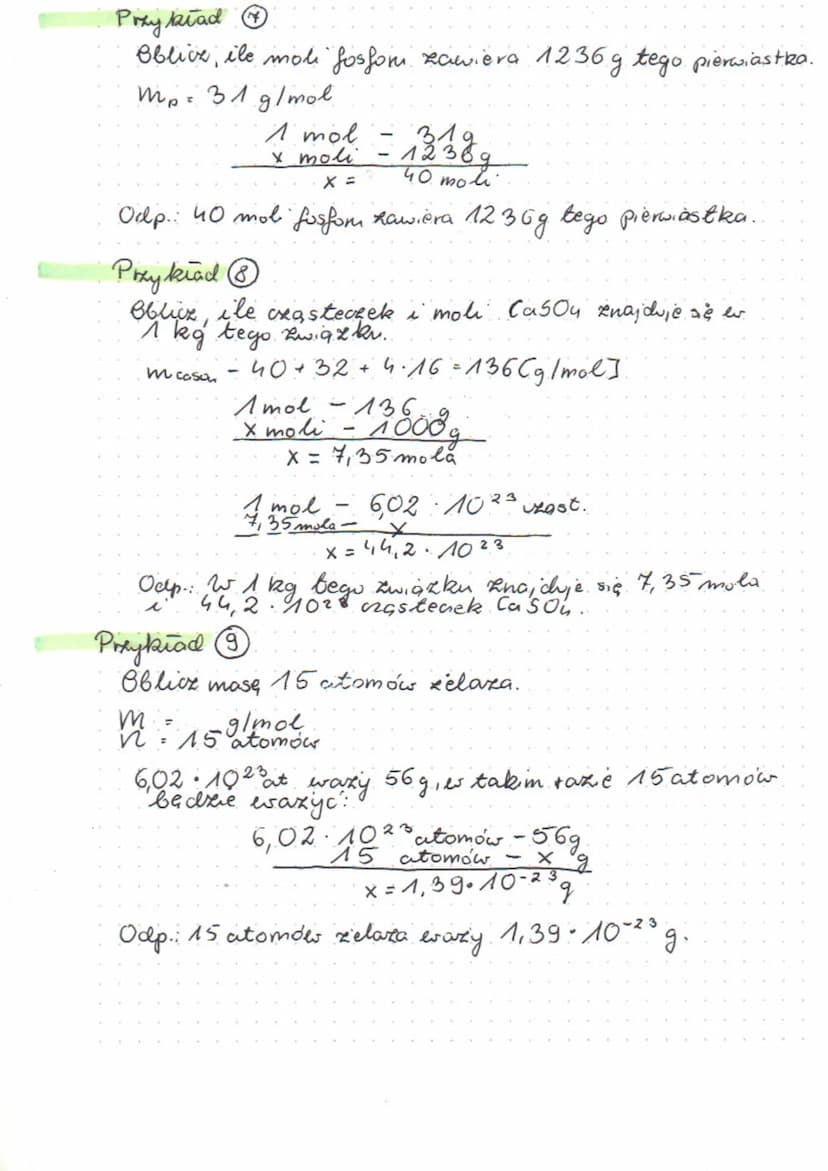 Przykład 7
Oblicz, ile moli fosforu zawiera 1236 g tego pierwiastka.
mp = 31 g/mol
1 mol - 31g
x moli - 1236g
x = 40 moli
Odp.: 40 mol fosforu zawiera 1236g tego pierwiastka.
Przykład 8
Oblicz, ile cząsteczek i moli CaSO4 znajduje się w
1 kg tego związku.
mCaSO4 - 40 + 32 + 4·16 = 136 [g/mol]
1 mol - 136 g
x moli - 1000g
x = 7,35 mola
1 mol - 6,02 · 10²³ cząst.
7,35 mola - x
x = 44,2 · 10²³
Odp.: W 1 kg tego związku znajduje się 7,35 mola
i 44,2 · 10²³ cząsteczek CaSO4.
Przykład 9
Oblicz masę 15 atomów żelaza.
M = g/mol
n = 15 atomów
6,02 · 10²³ at waży 56g, w takim razie 15 atomów
będzie ważyć:
6,02 · 10²³ atomów - 56g
15 atomów - x g
x = 1,39 · 10⁻²³ g
Odp.: 15 atomów żelaza waży 1,39 · 10⁻²³ g.